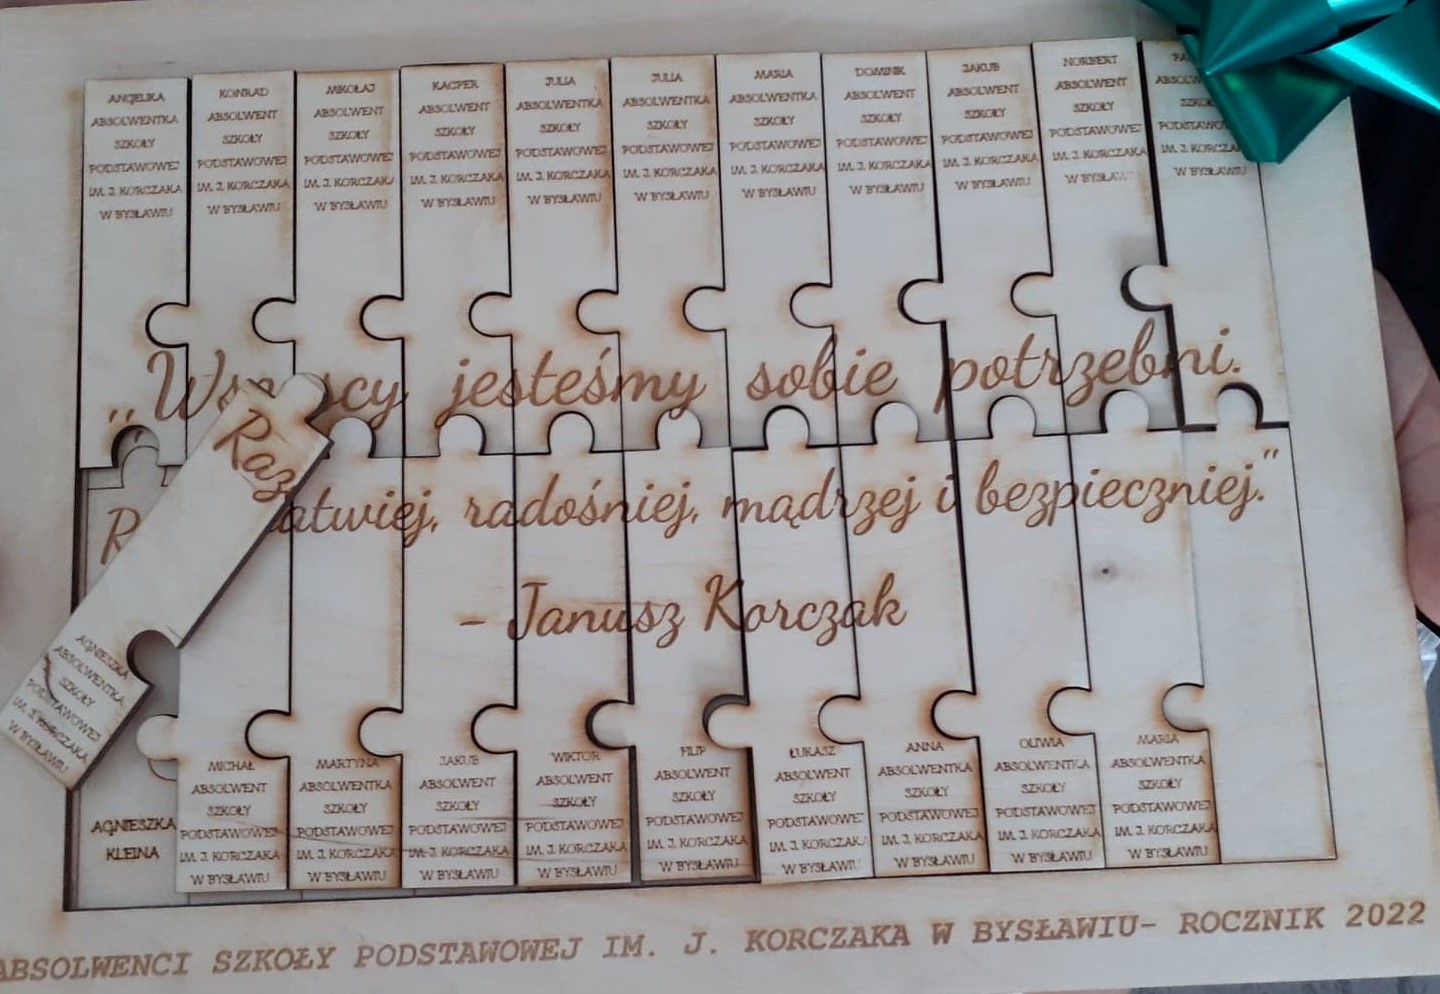 ANGELIKA
ABSOLWENTKA
SZKOŁY
PODSTAWOWEJ
IM. J. KORCZAKA
W BYSŁAWIU
KONRAD
ABSOLWENT
SZKOŁY
PODSTAWOWEJ
IM. J. KORCZAKA
W BYSŁAWIU
MIKOŁAJ
ABSOLWENT
SZKOŁY
PODSTAWOWEJ
IM. J. KORCZAKA
W BYSŁAWIU
KACPER
ABSOLWENT
SZKOŁY
PODSTAWOWEJ
IM. J. KORCZAKA
W BYSŁAWIU
JULIA
ABSOLWENTKA
SZKOŁY
PODSTAWOWEJ
IM. J. KORCZAKA
W BYSŁAWIU
JULIA
ABSOLWENTKA
SZKOŁY
PODSTAWOWEJ
IM. J. KORCZAKA
W BYSŁAWIU
MARIA
ABSOLWENTKA
SZKOŁY
PODSTAWOWEJ
IM. J. KORCZAKA
W BYSŁAWIU
DOMINIK
ABSOLWENT
SZKOŁY
PODSTAWOWEJ
IM. J. KORCZAKA
W BYSŁAWIU
JAKUB
ABSOLWENT
SZKOŁY
PODSTAWOWEJ
IM. J. KORCZAKA
W BYSŁAWIU
NORBERT
ABSOLWENT
SZKOŁY
PODSTAWOWEJ
IM. J. KORCZAKA
W BYSŁAWIU
IM. J.
W BYSŁAWIU
„ jesteśmy sobie potrzebni.
Raz
radośniej, mądrzej i bezpieczniej."
- Janusz Korczak
AGNIESZKA
ABSOLWENTKA
SZKOŁY
PODSTAWOWEJ
IM. J. KORCZAKA
W BYSŁAWIU
AGNIESZKA
KLEINA
MICHAŁ
ABSOLWENT
SZKOŁY
PODSTAWOWEJ
IM. J. KORCZAKA
W BYSŁAWIU
MARTYNA
ABSOLWENTKA
SZKOŁY
PODSTAWOWEJ
IM. J. KORCZAKA
W BYSŁAWIU
JAKUB
ABSOLWENT
SZKOŁY
PODSTAWOWEJ
IM. J. KORCZAKA
W BYSŁAWIU
WIKTOR
ABSOLWENT
SZKOŁY
PODSTAWOWEJ
IM. J. KORCZAKA
W BYSŁAWIU
FILIP
ABSOLWENT
SZKOŁY
PODSTAWOWEJ
IM. J. KORCZAKA
W BYSŁAWIU
ŁUKASZ
ABSOLWENT
SZKOŁY
PODSTAWOWEJ
IM. J. KORCZAKA
W BYSŁAWIU
ANNA
ABSOLWENTKA
SZKOŁY
PODSTAWOWEJ
IM. J. KORCZAKA
W BYSŁAWIU
OLIWIA
ABSOLWENTKA
SZKOŁY
PODSTAWOWEJ
IM. J. KORCZAKA
W BYSŁAWIU
MARIA
ABSOLWENTKA
SZKOŁY
PODSTAWOWEJ
IM. J. KORCZAKA
W BYSŁAWIU
ABSOLWENCI SZKOŁY PODSTAWOWEJ IM. J. KORCZAKA W BYSŁAWIU- ROCZNIK 2022